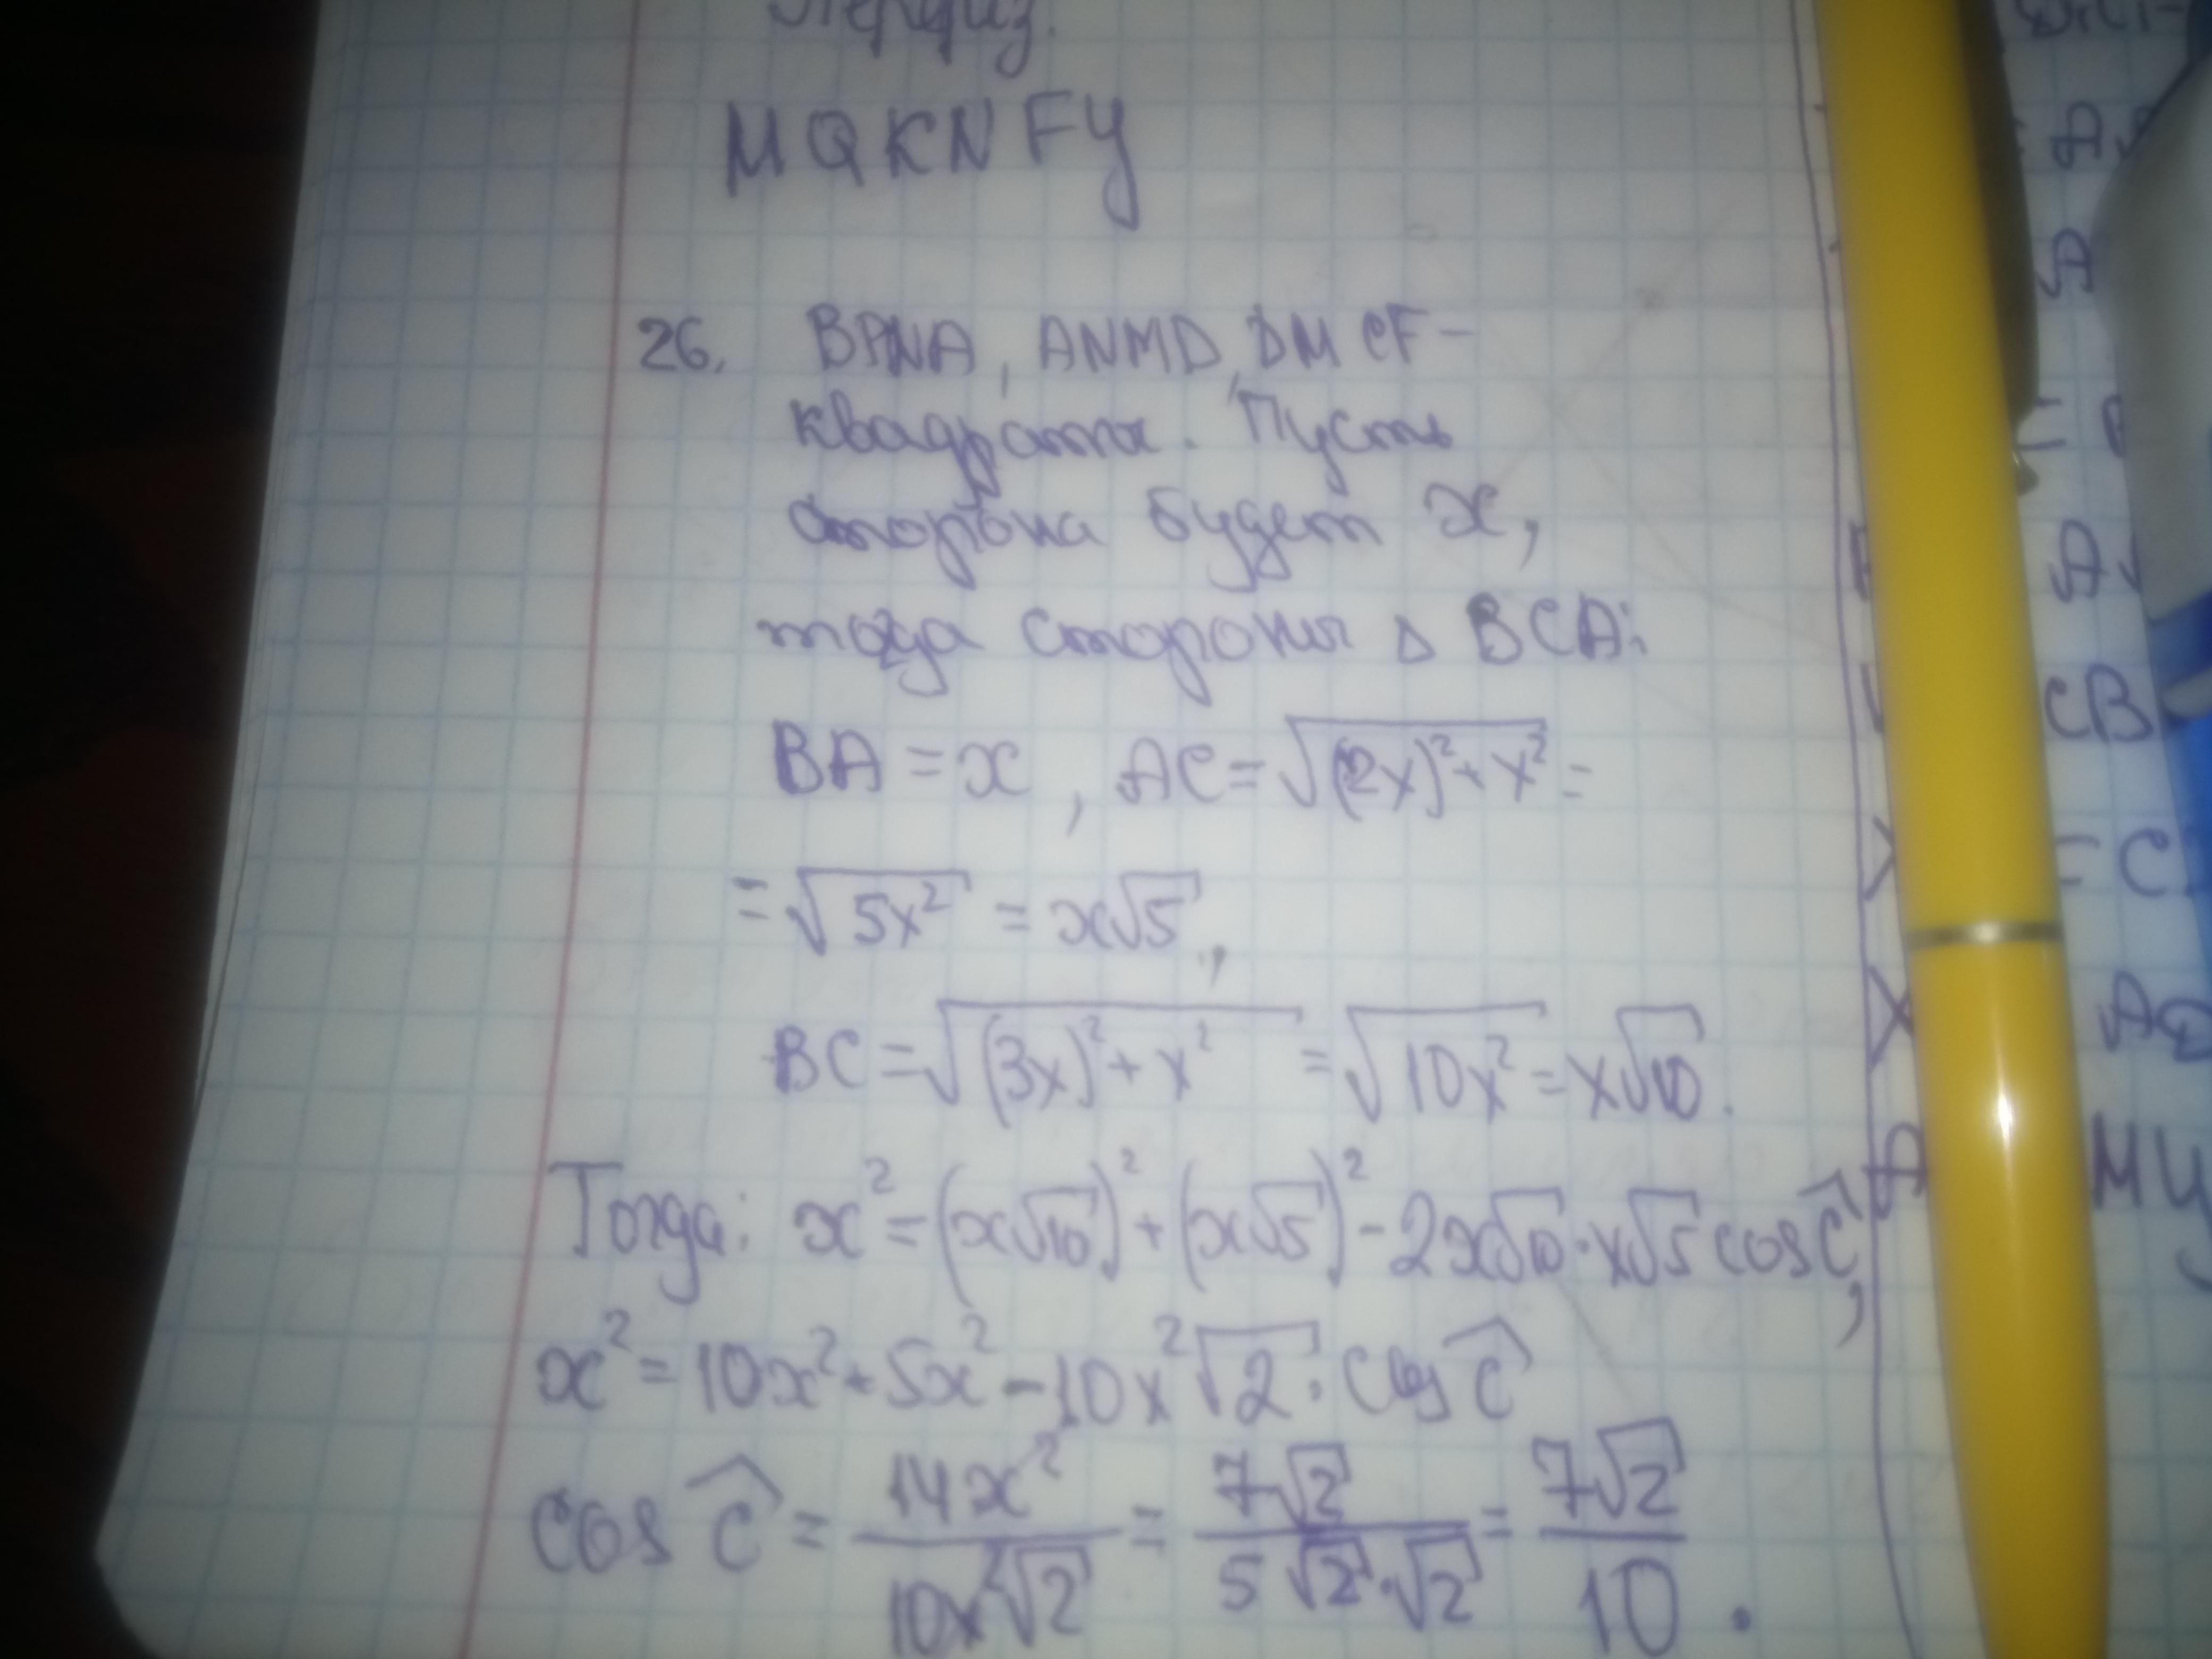 MQKNFY
26. BPNA, ANMD, DMCF -
квадраты. Пусть
сторона будет x,
тогда стороны △ BCA:
BA = x, AC = √((2x)² + x²) =
= √(5x²) = x√5,
BC = √((3x)² + x²) = √(10x²) = x√10.
Тогда: x² = (x√10)² + (x√5)² - 2x√10 · x√5 cos Ĉ,
x² = 10x² + 5x² - 10x²√2 · cos Ĉ
cos Ĉ = 14x² / 10x²√2 = 7√2 / 5√2·√2 = 7√2 / 10.
CB
= C
MY